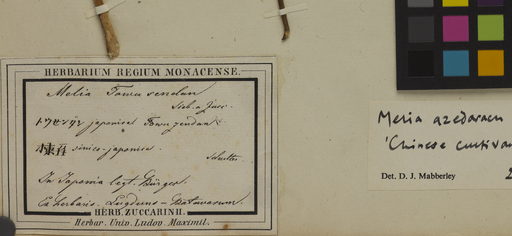 HERBARIUM REGIUM MONACENSE.
Melia Towu sendan
Sieb. a Zucc.
トウセンダン japonice Towu zendan
sinico-japonice.
Schultes
In Japonia legt. Bürger.
Ex herbario Lugduno-Batavorum.
HERB. ZUCCARINII.
Herbar. Univ. Ludov. Maximil.
Melia azedarach
'Chinese cultivar
Det. D. J. Mabberley
2